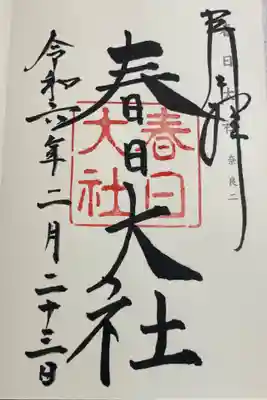 奉拝
春日大社
奈良二
春日大社
春日
大社
令和六年二月二十三日